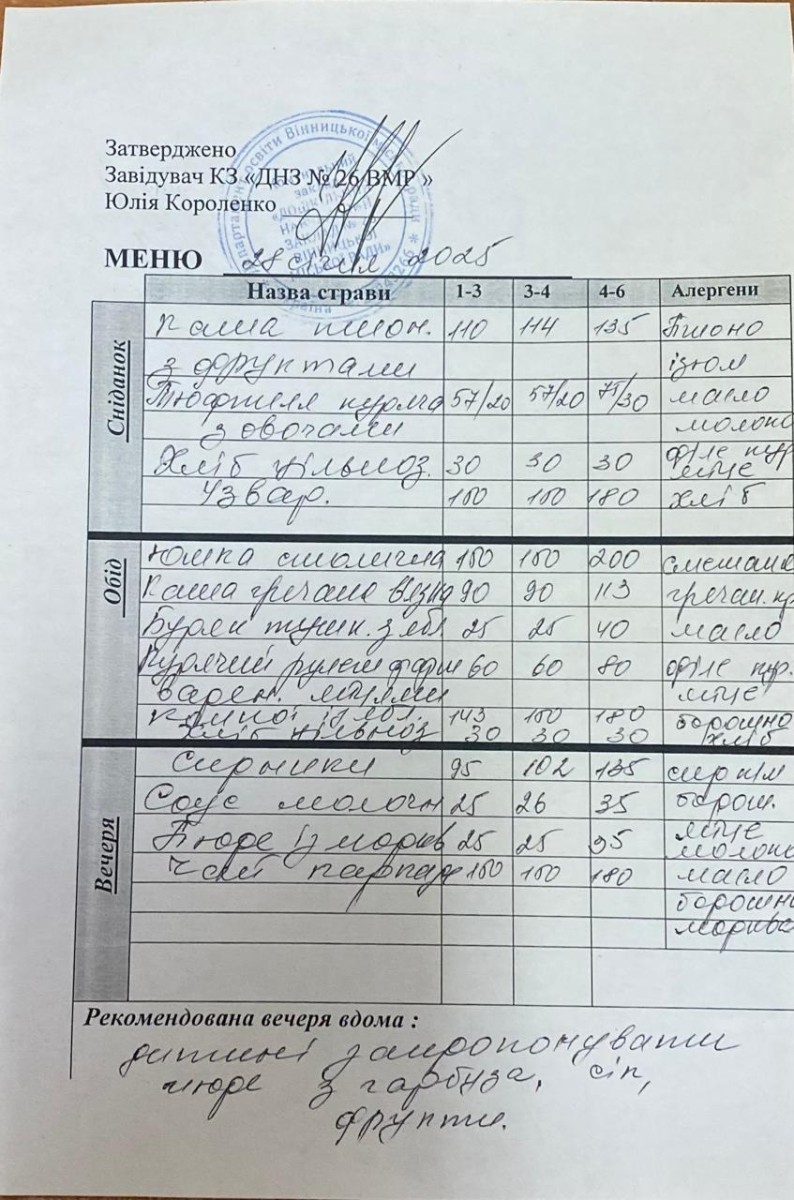 Затверджено
Завідувач КЗ «ДНЗ № 26 ВМР »
Юлія Короленко
МЕНЮ 28 січня 2025
Назва страви 1-3 3-4 4-6 Алергени
Сніданок
Каша пшон. 110 114 135 Пшоно
з фруктами ізюм
Тюфтеля куряча 57/20 57/20 71/30 масло
з овочами молоко
Хліб цільноз. 30 30 30 філе кур
яйце
Узвар. 150 150 180 хліб
Обід
Юшка столична 150 150 200 сметана
Каша гречана в'язка 90 90 113 гречан. кр
Буряк тушк. з ябл 25 25 40 масло
Курячий рулет фарш 60 60 80 філе кур.
варен. яйцями яйце
компот із ябл. 143 150 180 борошно
Хліб цільноз 30 30 30 хліб
Вечеря
Сирники 95 102 135 сир к/м
Соус молочн 25 26 35 борош.
яйце
Пюре із моркв 25 25 35 молоко
Чай каркаде 150 150 180 масло
борошно
морква
Рекомендована вечеря вдома :
дитині запропонувати
пюре з гарбуза, сік,
фрукти.